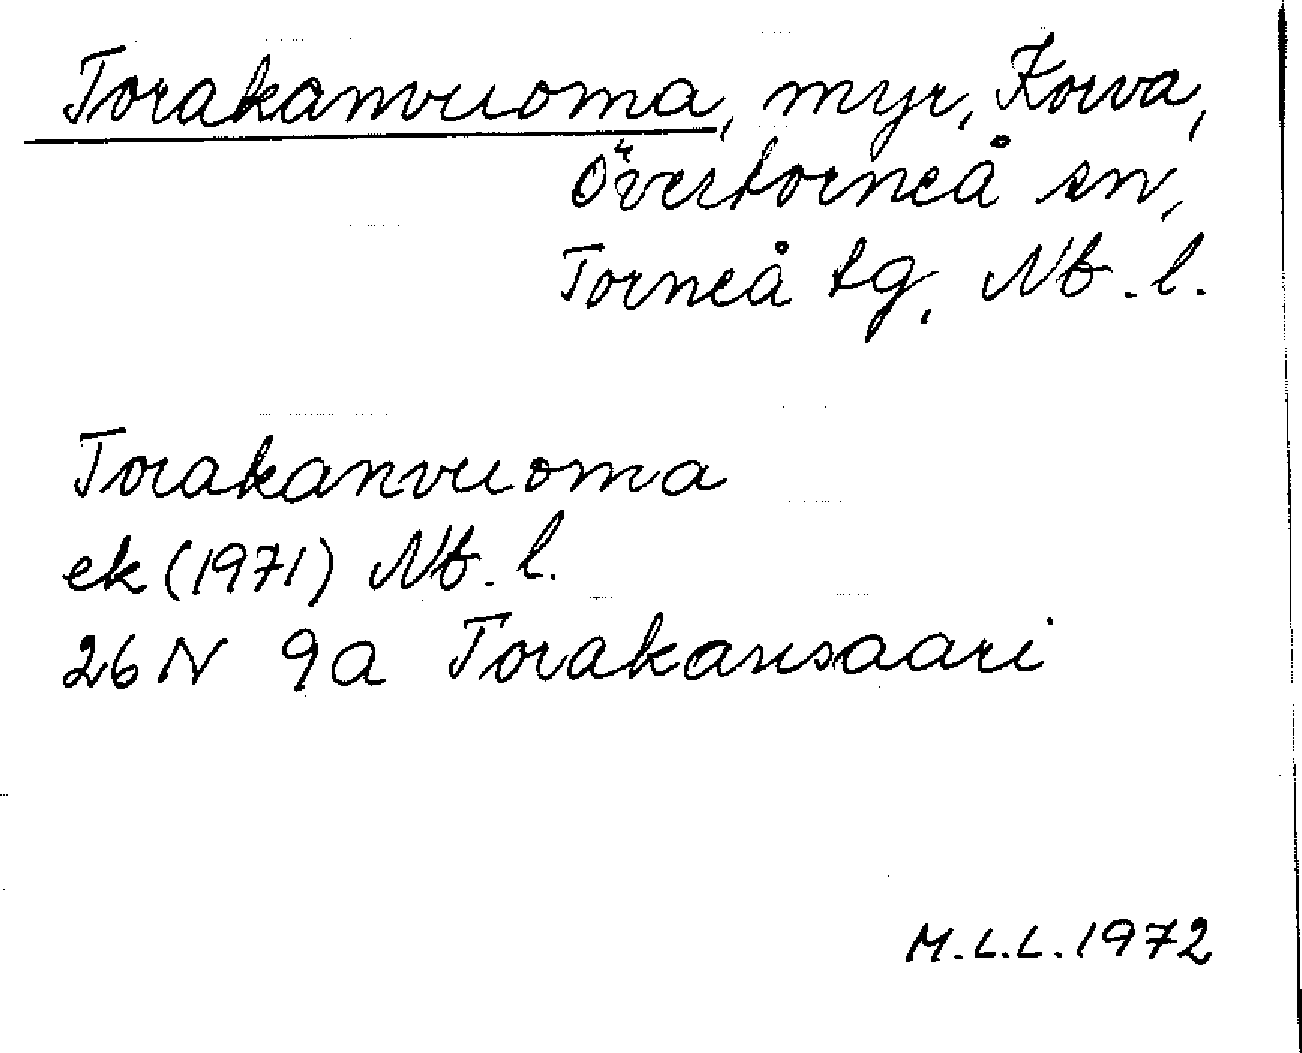 Torakanvuoma, myr, Korva,
Övertorneå sn,
Torneå tg, Nb. l.
Torakanvuoma
ek (1971) Nb. l.
26 N 9a Torakansaari
M.L.L. 1972